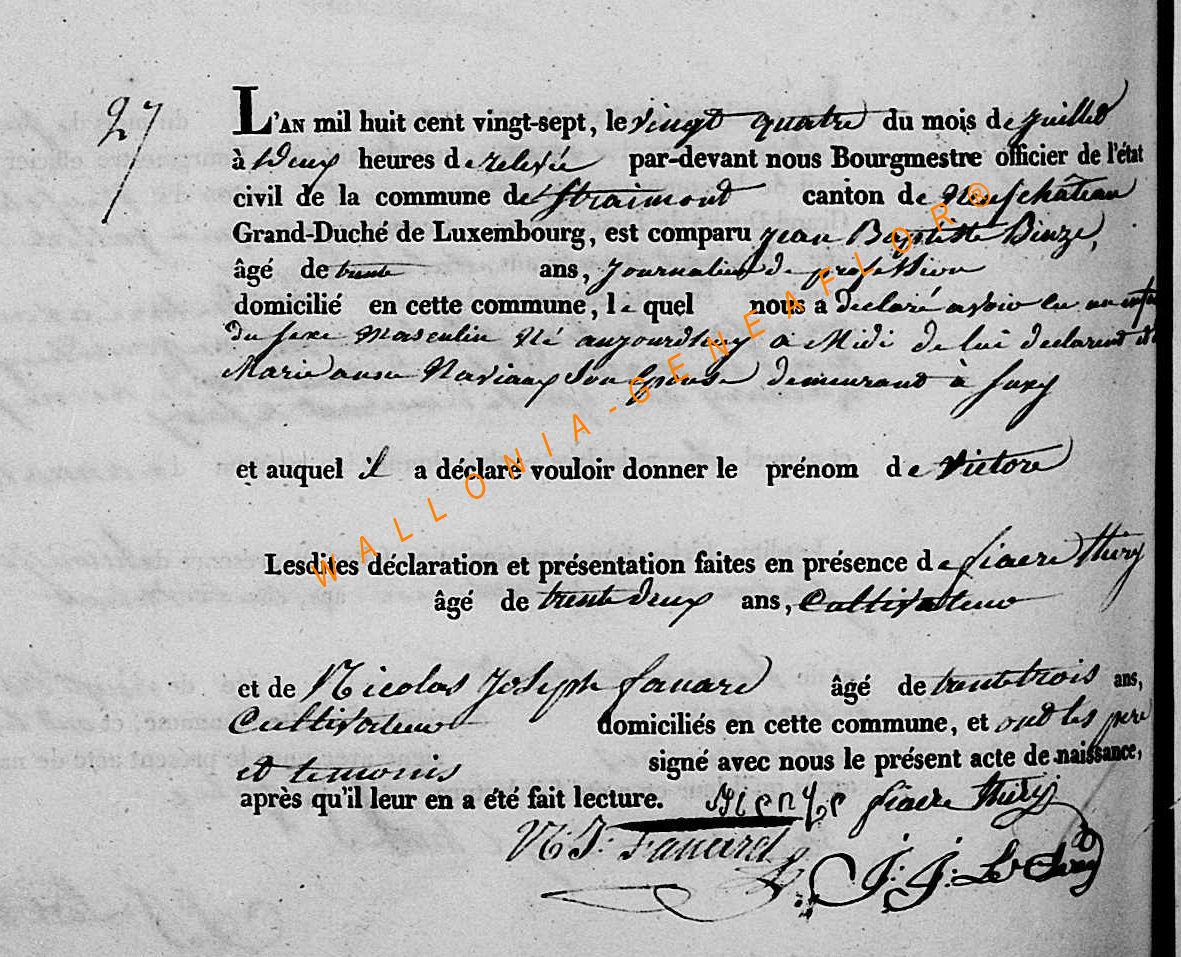 27
L'AN mil huit cent vingt-sept, le vingt quatre du mois de juillet
à Deux heures de relevée par-devant nous Bourgmestre officier de l'état
civil de la commune de Straimont canton de Neufchâteau
Grand-Duché de Luxembourg, est comparu Jean Baptiste Binze,
âgé de trente ans, Journalier de profession
domicilié en cette commune, le quel nous a Declaré avoir eu un enfant
du sexe Masculin Né aujourdhuy a Midi de lui declarant et de
Marie anne Naviaux Son Epouse demeurant à Suxy
et auquel il a déclaré vouloir donner le prénom de Victore
Lesdites déclaration et présentation faites en présence de fiacre Thiry
âgé de trente deux ans, Cultivateur
et de Nicolas Joseph fanard âgé de trente trois ans,
Cultivateur domiciliés en cette commune, et ont les pere
et temonis signé avec nous le présent acte de naissance,
après qu'il leur en a été fait lecture. fiacre Thiry
N. J. Fanard
J: J:
WALLONIA-GENEAFLOR®